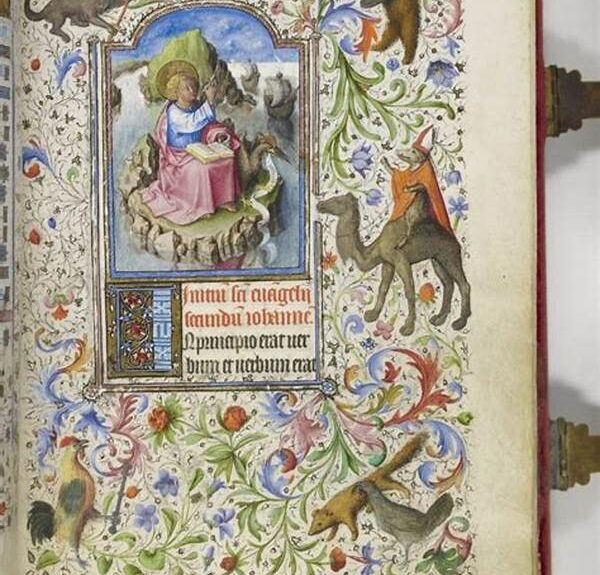 Initiū sc̄i euāgelij
secundū iohannē
IN principio erat uer
bum et uerbum erat